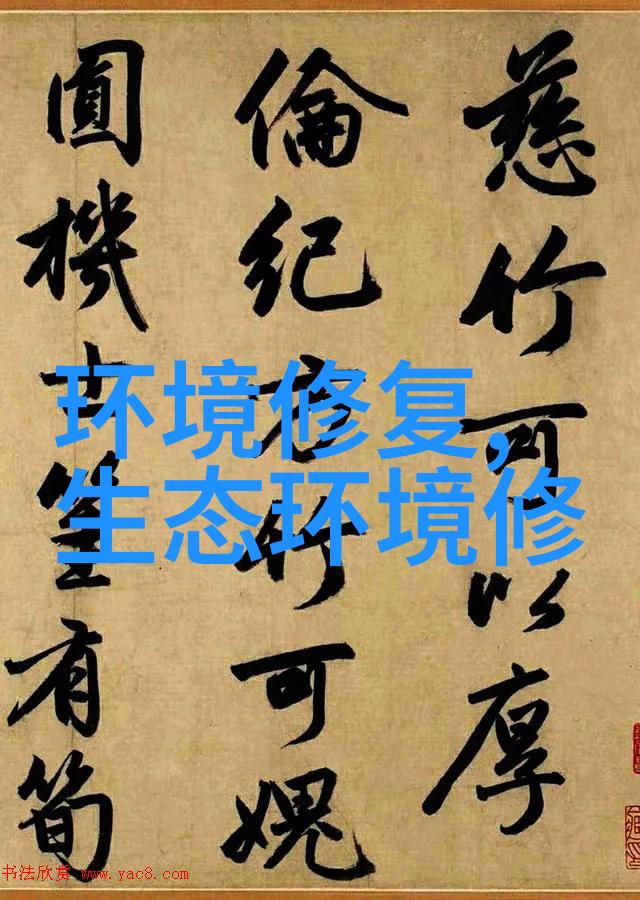 慈竹可以厚
倫紀方竹可媿
圓機士筀有筍
环境修复,
生态环境修
书法欣赏 www.yac8.com